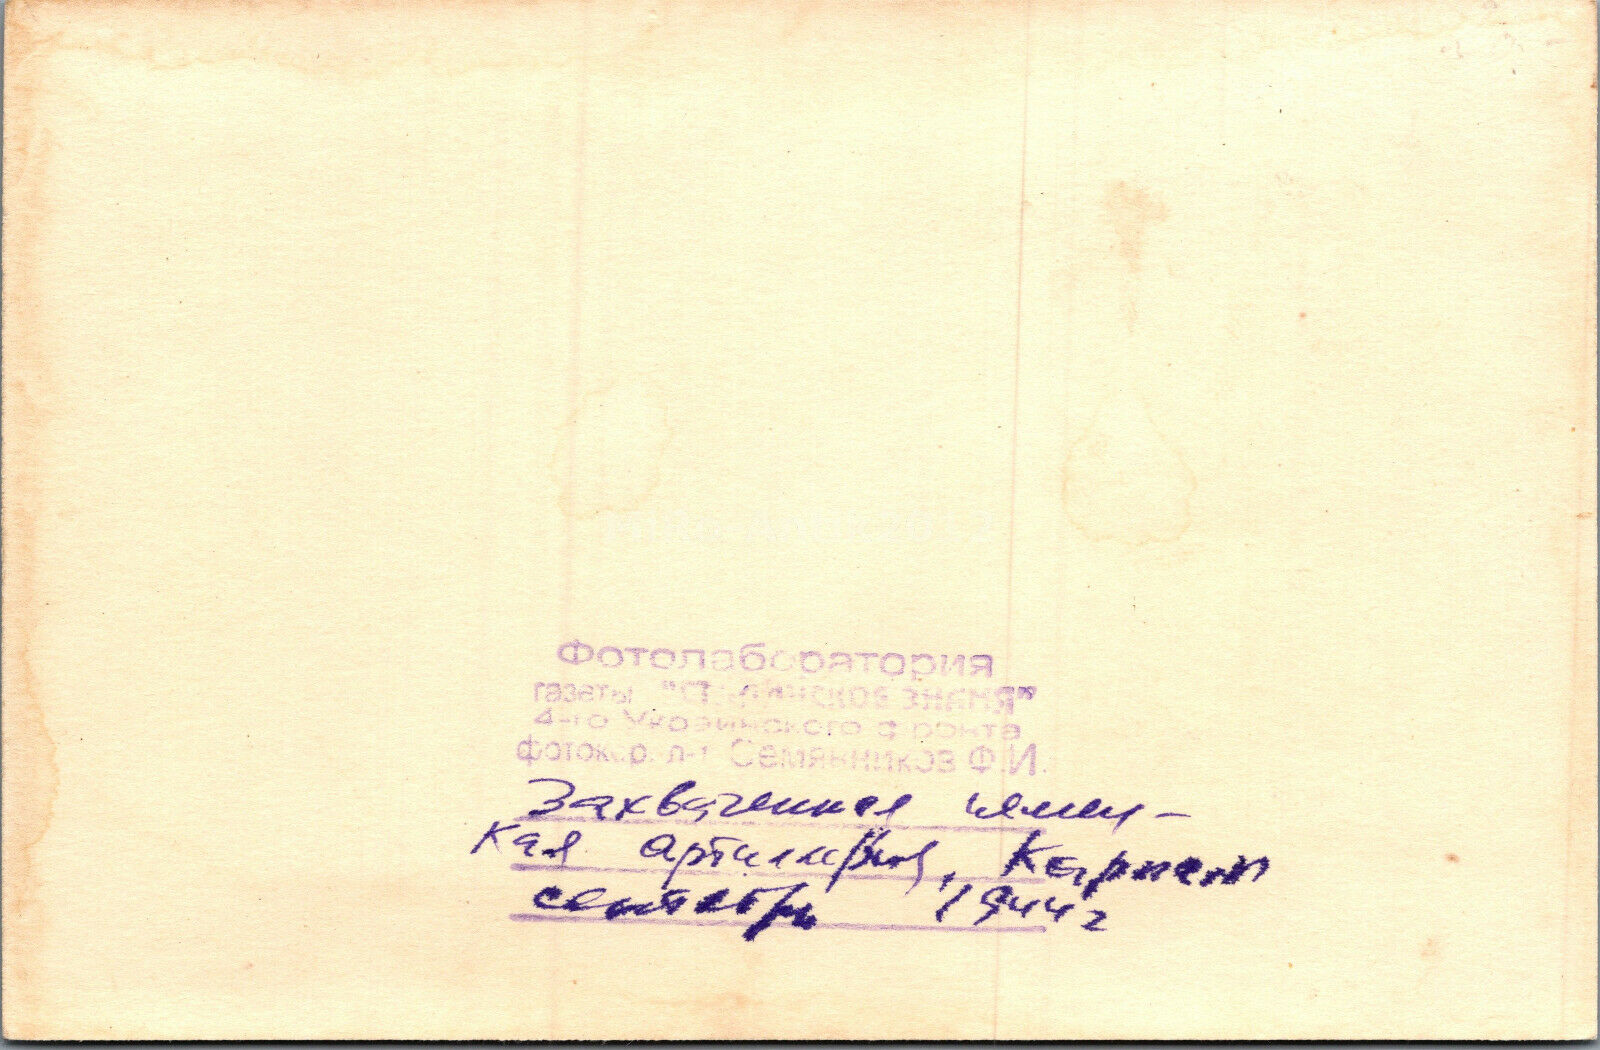 Фотолаборатория
газеты "Сталинское знамя"
4-го Украинского фронта
фотокор. л-т Семянников Ф.И.
Захваченная немец-
кая артиллерия, Карпаты
сентябрь 1944г